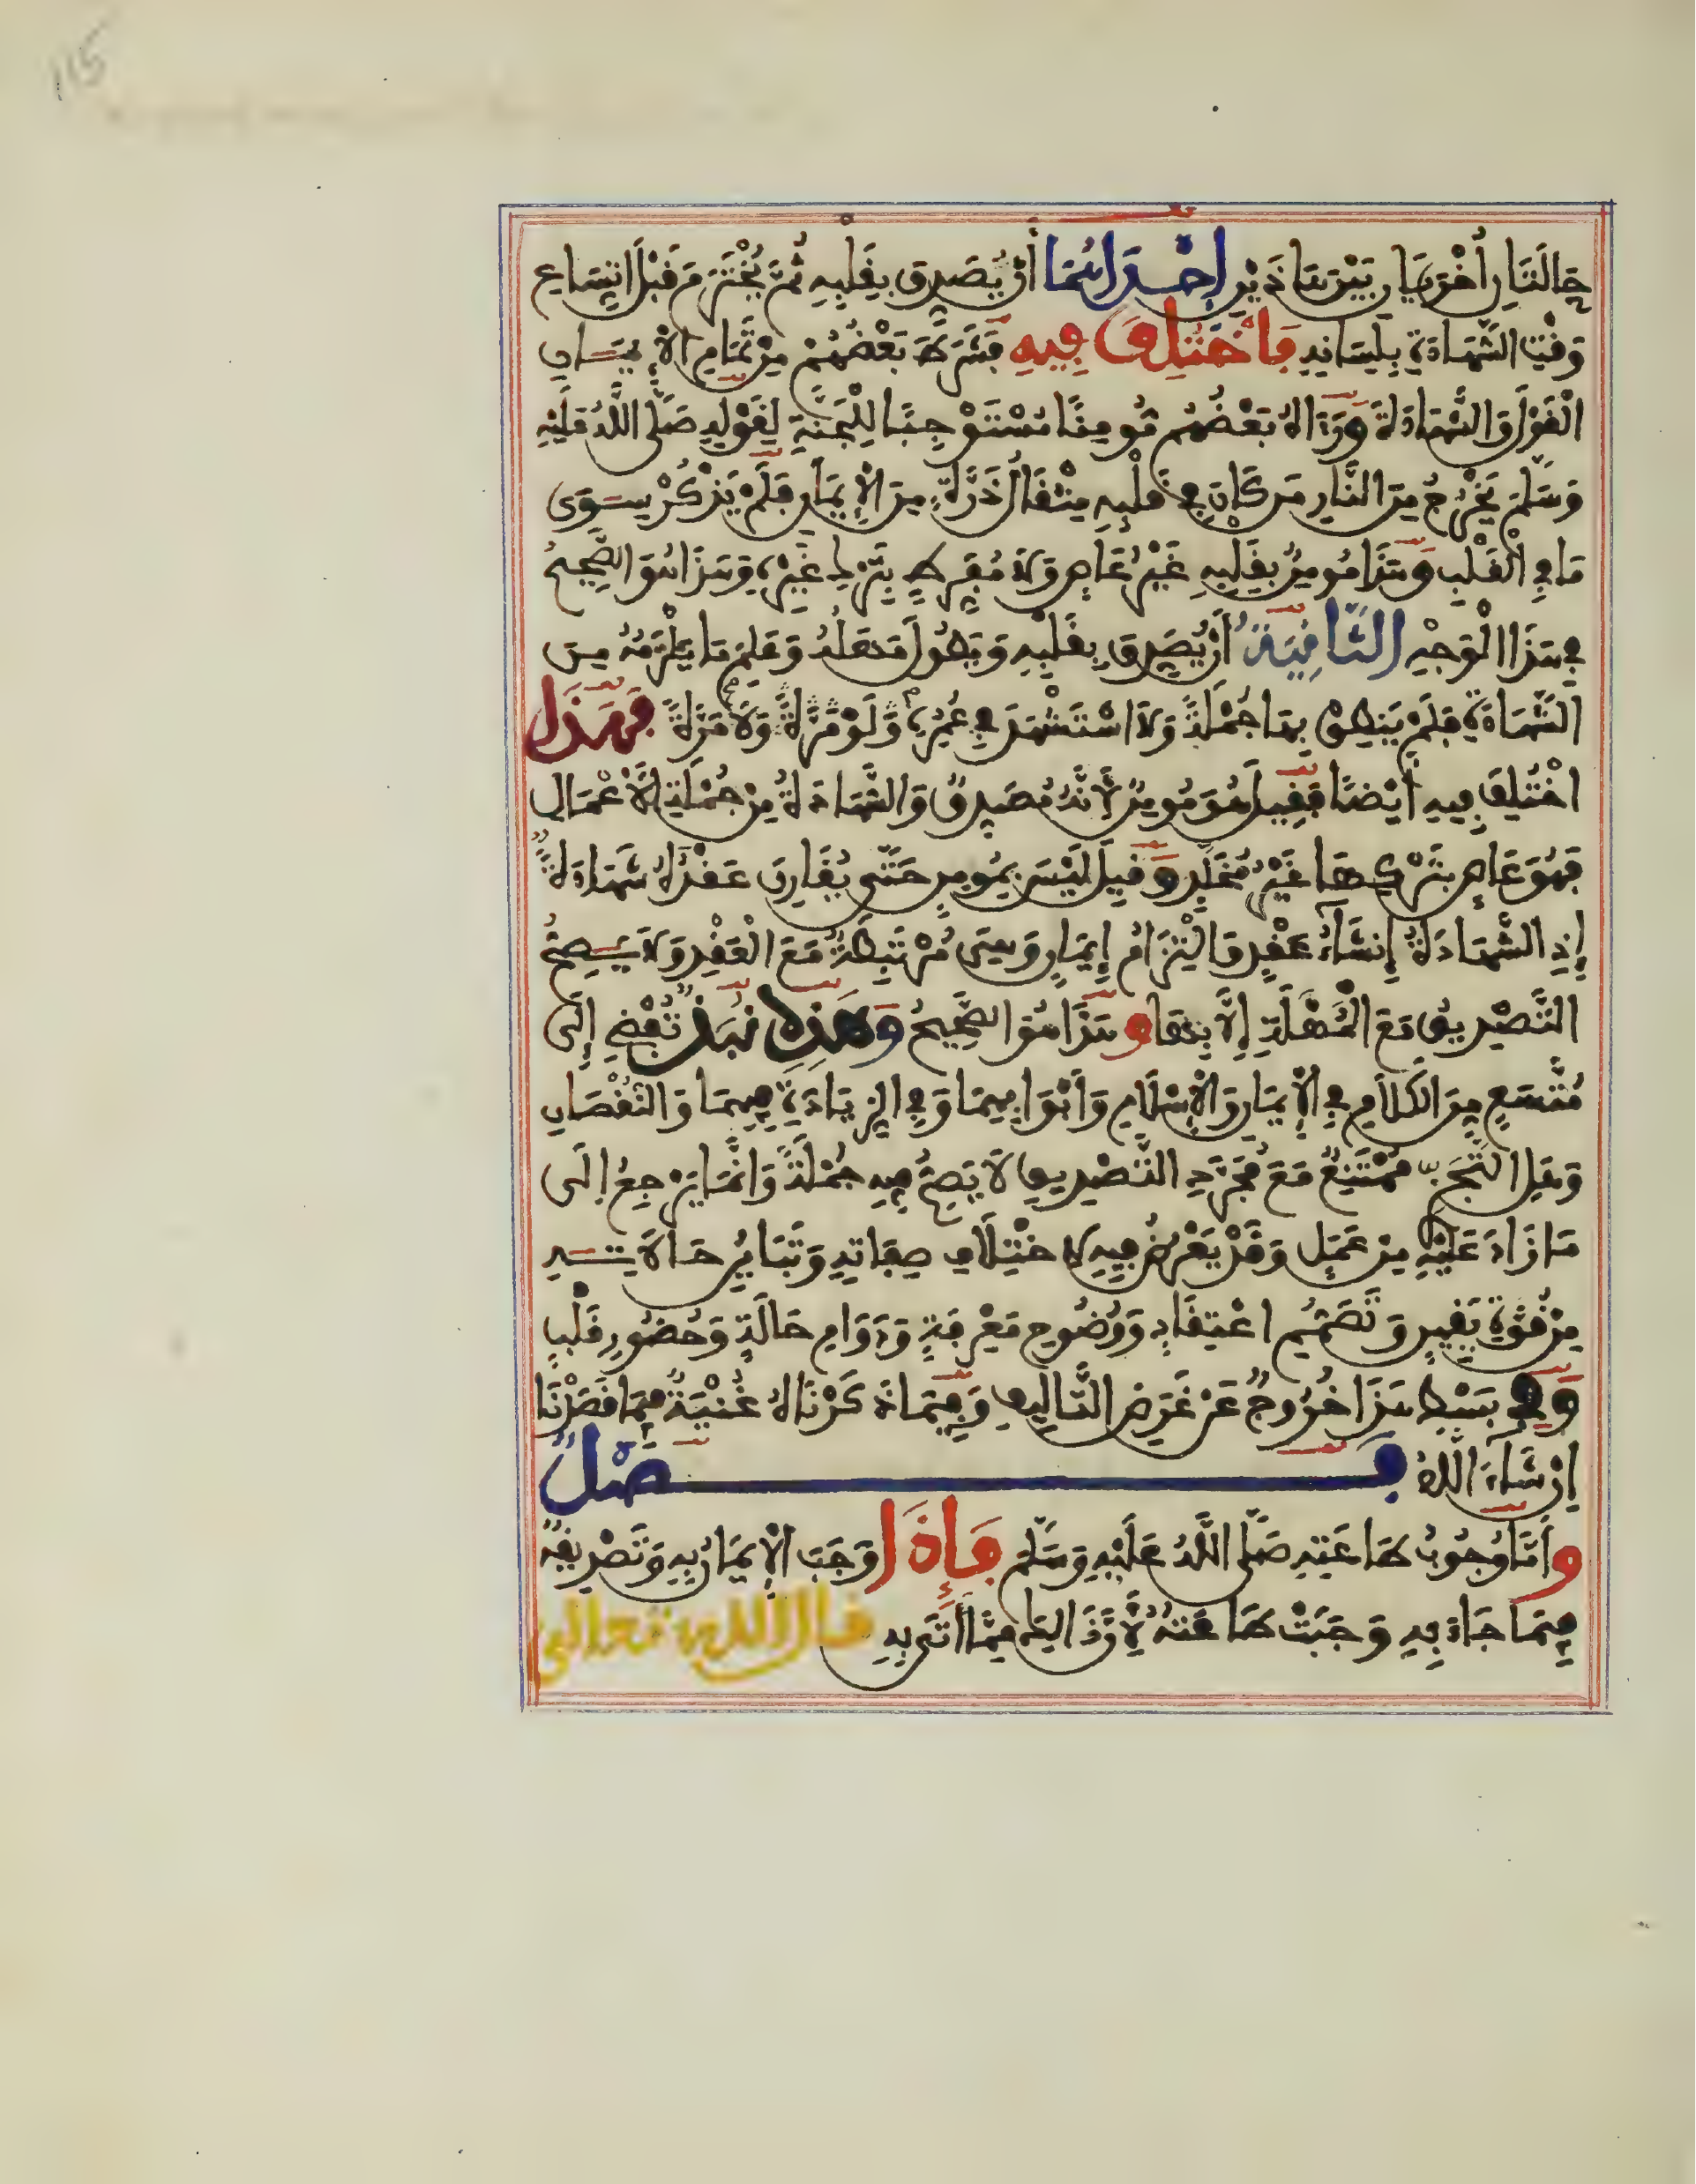 115
حَالَتَانِ أُخْرَيَانِ بَيْنَ هَاذَيْنِ إِحْدَاهُمَا أَنْ يُصَدِّقَ بِقَلْبِهِ ثُمَّ يُخْتَرَمَ قَبْلَ اتِّسَاعِ
وَقْتِ الشَّهَادَةِ بِلِسَانِهِ فَاخْتُلِفَ فِيهِ فَشَرَطَ بَعْضُهُمْ مِنْ تَمَامِ الْإِيمَانِ
الْقَوْلَ وَالشَّهَادَةَ وَرَءَاهُ بَعْضُهُمْ مُومِنًا مُسْتَوْجِبًا لِلْجَنَّةِ لِقَوْلِهِ صَلَّى اللَّهُ عَلَيْهِ
وَسَلَّمَ يَخْرُجُ مِنَ النَّارِ مَن كَانَ فِي قَلْبِهِ مِثْقَالُ ذَرَّةٍ مِنَ الْإِيمَانِ فَلَمْ يَذْكُرْ سِوَى
مَا فِي الْقَلْبِ وَهَذَا مُومِنٌ بِقَلْبِهِ غَيْرُ عَاصٍ وَلَا مُفَرِّطٍ بِتَرْكِ غَيْرِهِ وَهَذَا هُوَ الصَّحِيحُ
فِي هَذَا الْوَجْهِ الثَّانِيَةُ أَنْ يُصَدِّقَ بِقَلْبِهِ وَيُطَوِّلَ مَهَلَهُ وَعَلِمَ مَا يَلْزَمُهُ مِنَ
الشَّهَادَةِ فَلَمْ يَنْطِقْ بِهَا جُمْلَةً وَلَا اسْتَشْهَدَ فِي عُمُرِهِ وَلَوْ مَرَّةً وَلَا مَرَّةً فَهَذَا
اخْتُلِفَ فِيهِ أَيْضًا فَقِيلَ هُوَ مُومِنٌ لِأَنَّهُ مُصَدِّقٌ وَالشَّهَادَةُ مِنْ جُمْلَةِ الْأَعْمَالِ
فَهُوَ عَاصٍ بِتَرْكِهَا غَيْرُ مُخَلَّدٍ وَقِيلَ لَيْسَ بِمُومِنٍ حَتَّى يُقَارِنَ عَقْدَهُ شَهَادَةٌ
إِذِ الشَّهَادَةُ إِنشَاءُ عَقْدٍ وَالْتِزَامُ إِيمَانٍ وَهِيَ مُرْتَبِطَةٌ مَعَ الْعَقْدِ وَلَا يَصِحُّ
التَّصْدِيقُ مَعَ الْمُهْلَةِ إِلَّا بِهَا وَهَذَا هُوَ الصَّحِيحُ وَهَذِهِ نُبَذٌ تُفْضِي إِلَى
مُتَّسَعٍ مِنَ الْكَلَامِ فِي الْإِيمَانِ وَالْإِسْلَامِ وَأَبْوَابِهِمَا وَفِي الزِّيَادَةِ فِيهِمَا وَالنُّقْصَانِ
وَهَلِ التَّجَزِّي مُمْتَنِعٌ مَعَ مُجَرَّدِ التَّصْدِيقِ لَا يَصِحُّ فِيهِ جُمْلَةً وَإِنَّمَا يَرْجِعُ إِلَى
مَا زَادَ عَلَيْهِ مِنْ عَمَلٍ وَقَدْ يَعْرِضُ فِيهِ لِاخْتِلَافِ صِفَاتِهِ وَتَبَايُنِ حَالَاتِهِ
مِنْ قُوَّةِ يَقِينٍ وَتَصْمِيمِ اعْتِقَادٍ وَوُضُوحِ مَعْرِفَةٍ وَدَوَامِ حَالَةٍ وَحُضُورِ قَلْبٍ
وَفِي بَسْطِ هَذَا خُرُوجٌ عَنْ غَرَضِ التَّالِيفِ وَفِيمَا ذَكَرْنَاهُ غُنْيَةٌ فِيمَا قَصَدْنَا
إِنْ شَاءَ اللَّهُ فَصْلٌ
وَأَمَّا وُجُوبُ طَاعَتِهِ صَلَّى اللَّهُ عَلَيْهِ وَسَلَّمَ فَإِذَا وَجَبَ الْإِيمَانُ بِهِ وَتَصْدِيقُهُ
فِيمَا جَاءَ بِهِ وَجَبَتْ طَاعَتُهُ لِأَنَّ ذَالِكَ مِمَّا أَتَى بِهِ قال الله تعالى